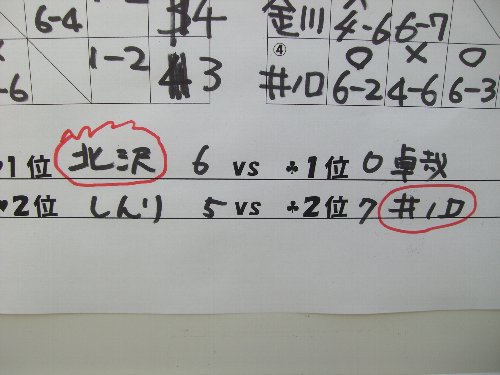 6-4 4 金川 4-6 6-7
1-2 3 ④ 井口 ○ × ○
-6 6-2 4-6 6-3
1位 北沢 6 vs 1位 0 卓哉
2位 しんり 5 vs 2位 7 井口